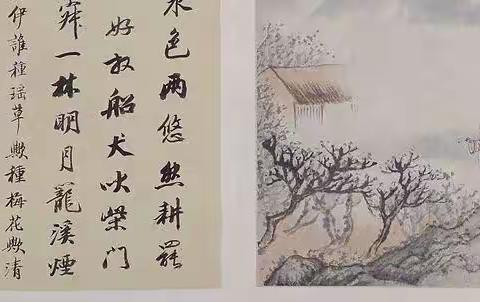 水色兩悠然耕罷
好放船犬吠柴門
一林明月籠溪煙
伊誰種瑤草歟種梅花歟清